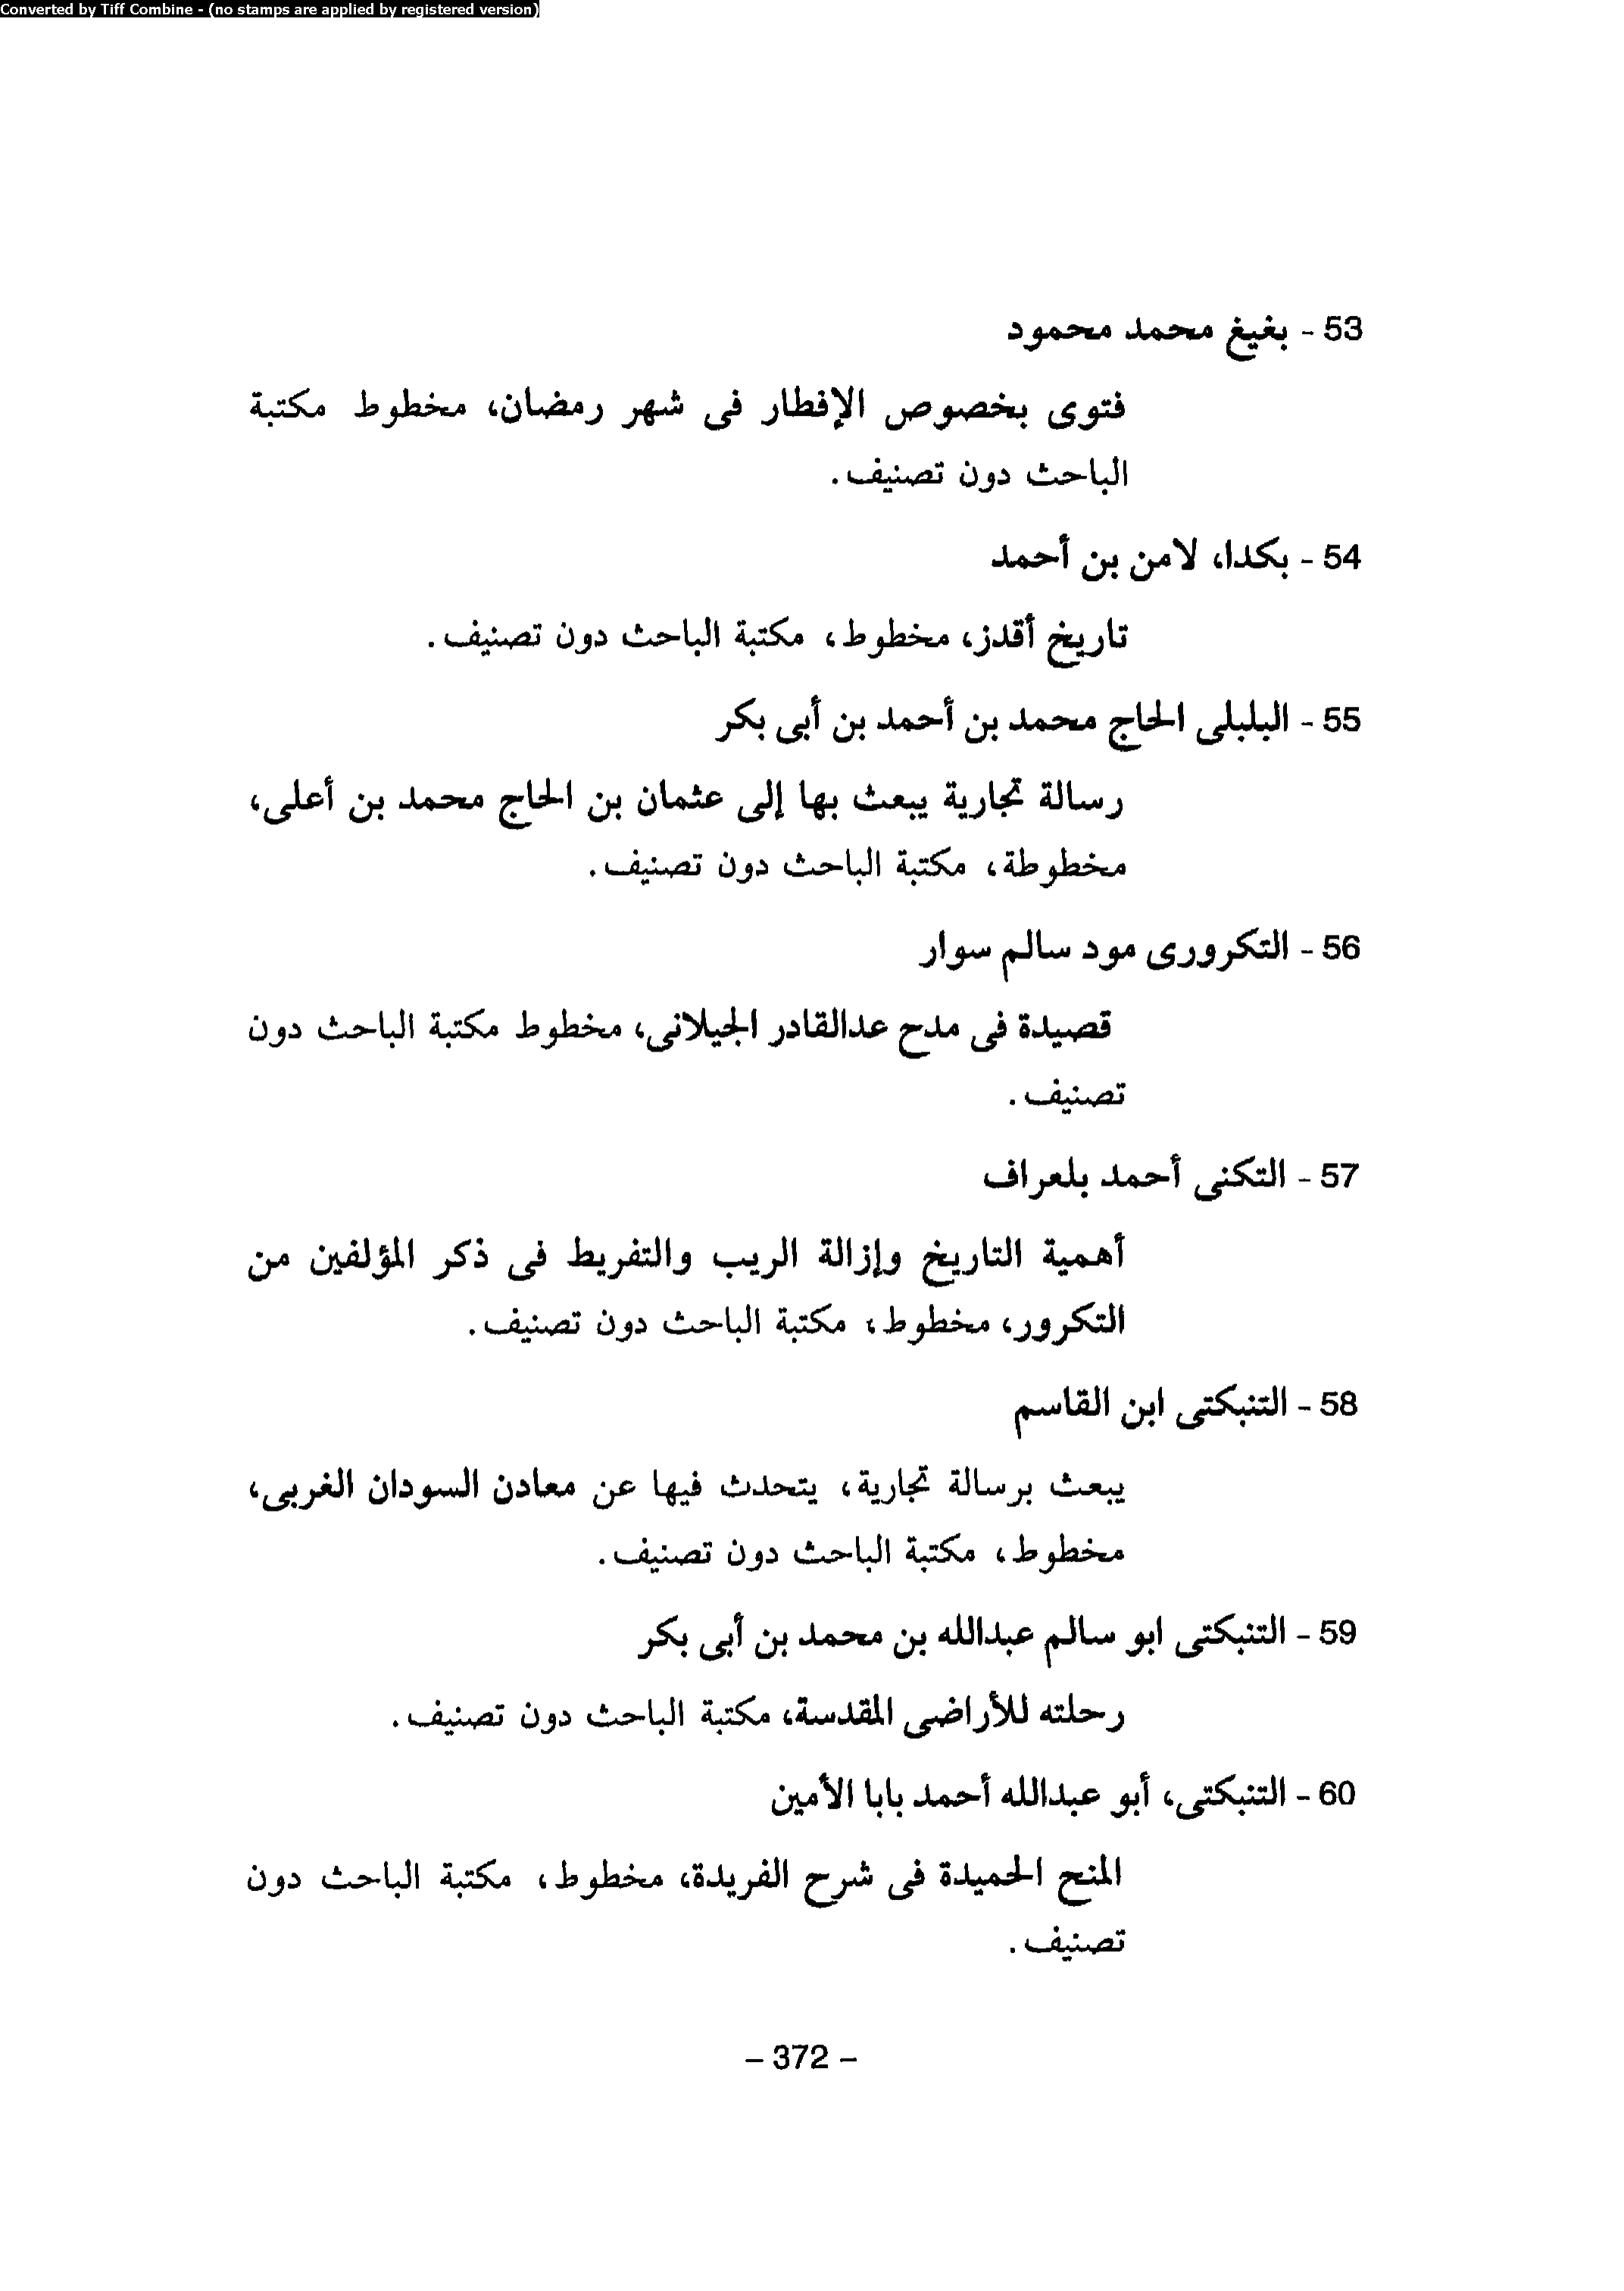 Converted by Tiff Combine - (no stamps are applied by registered version)
53 - بغيغ محمد محمود
فتوى بخصوص الإفطار فى شهر رمضان، مخطوط مكتبة
الباحث دون تصنيف.
54 - بكدا، لامن بن أحمد
تاريخ أقدز، مخطوط، مكتبة الباحث دون تصنيف.
55 - البلبلى الحاج محمد بن أحمد بن أبى بكر
رسالة تجارية يبعث بها إلى عثمان بن الحاج محمد بن أعلى،
مخطوطة، مكتبة الباحث دون تصنيف.
56 - التكرورى مود سالم سوار
قصيدة فى مدح عدالقادر الجيلانى، مخطوط مكتبة الباحث دون
تصنيف.
57 - التكنى أحمد بلعراف
أهمية التاريخ وإزالة الريب والتفريط فى ذكر المؤلفين من
التكرور، مخطوط، مكتبة الباحث دون تصنيف.
58 - التنبكتى ابن القاسم
يبعث برسالة تجارية، يتحدث فيها عن معادن السودان الغربى،
مخطوط، مكتبة الباحث دون تصنيف.
59 - التنبكتى ابو سالم عبدالله بن محمد بن أبى بكر
رحلته للأراضى المقدسة، مكتبة الباحث دون تصنيف.
60 - التنبكتى، أبو عبدالله أحمد بابا الأمين
المنح الحميدة فى شرح الفريدة، مخطوط، مكتبة الباحث دون
تصنيف.
- 372 -